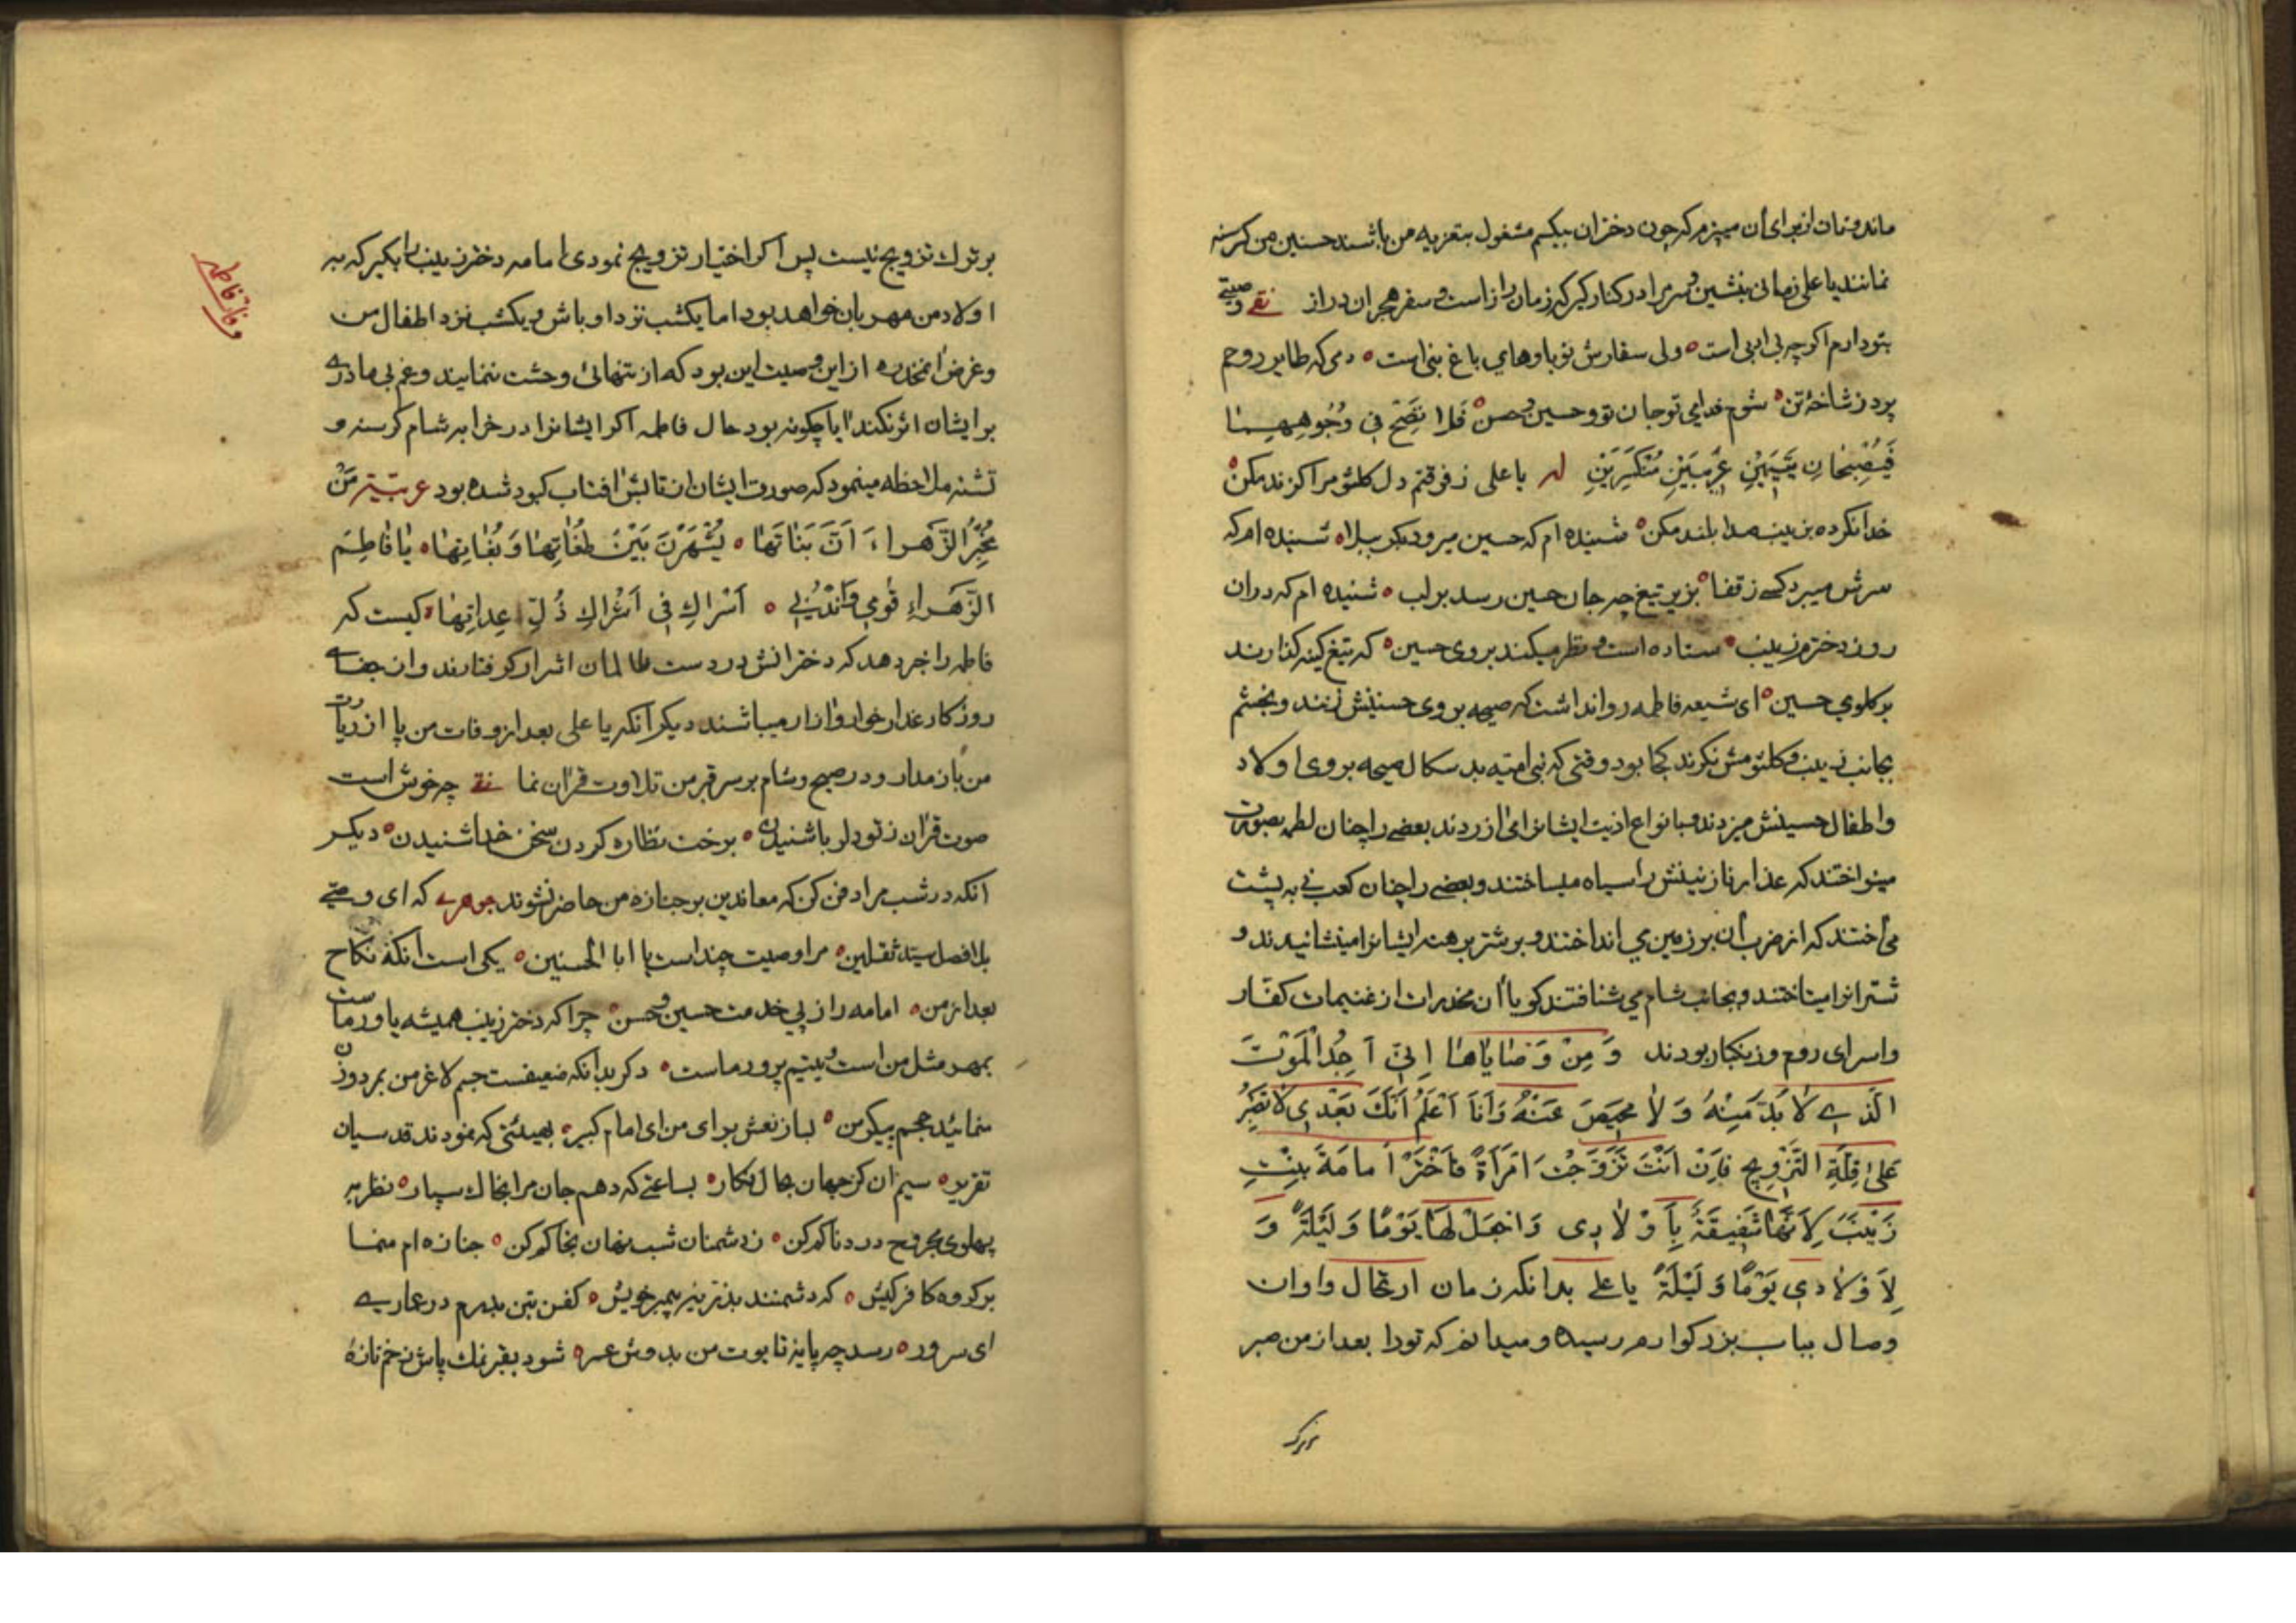 ماند و نان از برای آن میپزم که چون دختران بیکسم مشغول بتعزیه من باشند حسنین من کرسنه
نمانند یا علی زمانی بنشین و سر مرا در کنار کیر که زمان راز است و سفر هجران دراز نقے وصیتے
بتو دارم اکر چه بی ادبی است ولی سفارش نوباوهای باغ بنی است دمی که طایر روحم
پرد ز شاخهٔ تن شوم فدای تو جان تو و حسین و حسن فَلا تَصِحْ فی وُجُوهِهِما
فَیُصْبِحانِ یَتیمَیْنِ غَریبَیْنِ مُنْکَسِرَیْنِ له یا علی ز فرقتم دل کلثوم را کزند مکن
خدا نکرده بزینب صدا بلند مکن شنیده ام که حسین میرود بکرببلا شنیده ام که
سرش میبرد کسے ز قفا بزیر تیغ چه جان حسین رسد بر لب شنیده ام که در ان
روز دخترم زینب ستاده است و نظر میکند بروی حسین که تیغ کینه کذارند
بر کلوی حسین ای شیعه فاطمه روا نداشت که صیحه بروی حسنینش زنند و بخشم
بجانب زینب و کلثومش نکرند کجا بود وقتی که بنی امیّه بد سکال صیحه بروی اولاد
و اطفال حسینش میزدند و بانواع اذیت ایشانرا می ازردند بعضے را چنان لطمه بصورت
مینواختند که عذار نازنینش را سیاه میساختند و بعضے را چنان کعب نے به پشت
می اختند که از ضرب آن بر زمین می انداختند و بر شتر برهنه ایشانرا مینشانیدند و
شترانرا میتاختند و بجانب شام می شتافتند کویا آن مخدرات از غنیمات کفّار
و اسرای روم و زنکبار بودند وَ مِنْ وَصٰایاها اِنّی اَجِدُ الْمَوْتَ
الَّذی لا بُدَّ مِنْهُ وَ لا مَحیصَ عَنْهُ وَ اَنَا اَعْلَمُ اَنَّکَ بَعْدی لا تَصْبِرُ
عَلیٰ قِلَّةِ التَّزْویجِ فَاِنْ اَنْتَ تَزَوَّجْتَ امْرَأَةً فَاخْتَرْ اَمامَةَ بِنْتِ
زَیْنَبَ لِاَنَّها شَفیقَةٌ بِاَوْلادی وَ اجْعَلْ لَها یَوْمًا وَ لَیْلَةً وَ
لِاَوْلادی یَوْمًا وَ لَیْلَةً یا علے بدانکه زمان ارتحال و اوان
وصال بباب بزرکوارم رسیده و میدانم که تو را بعد از من صبر
بر ترک
بر ترک تزویج نیست پس اکر اختیار تزویج نمودی امامه دختر زینب را بکیر که به
اولاد من مهربان خواهد بود اما یکشب نزد او باش و یکشب نزد اطفال من
و غرض انمخدره از این وصیت این بود که از تنهائی وحشت ننمایند و غم بی مادرے
بر ایشان اثر نکند ایا چکونه بود حال فاطمه اکر ایشانرا در خرابه شام کرسنه و
تشنه ملاحظه مینمود که صورت ایشان از تابش افتاب کبود شده بود عربیّة مَنْ
مُخْبِرُ الزَّهراءِ اَنَّ بَناتَها یُشْهَرْنَ بَیْنَ طُغاتِها وَ بُغاتِها یا فاطِمَ
الزَّهراءِ قُومی وَ انْدُبی اَسْراکِ فی اَشْراکِ ذُلِّ عِداتِها کیست که
فاطمه را خبر دهد که دخترانش در دست ظالمان اشرار کرفتارند و از جفاے
روزکار غدار خوار و ازار میباشند دیکر آنکه یا علی بعد از وفات من پا از زیارت
من باز مدار و در صبح و شام بر سر قبر من تلاوت قرآن نما نقے چه خوش است
صوت قرآن ز تو دلربا شنیدن برخت نظاره کردن سخن خدا شنیدن دیکر
آنکه در شب مرا دفن کن که معاندین بر جنازه من حاضر نشوند جوهرے که ای وصے
بلافصل سیّد ثقلین مرا وصیت چند است یا ابا الحسنین یکی است آنکه نکاح
بعد از من امامه را از پی خدمت حسین و حسن چرا که دختر زینب همیشه یاور ماست
بمهر مثل من است و یتیم پرور ماست دکر بدانکه ضعیفست جسم لاغر من بمرد و زن
منمائید حجم پیکر من بساز نعش برای من ای امام کبیر بهیئتی که نمودند قدسیان
تقریر سیم ان کز جهان بحال نکار بساعتے که دهم جان مرا بخاک سپار نظر به
پهلوی مجروح دردناکم کن ز دشمنان شب پنهان بخاکم کن جنازه ام منما
بر کروه کافر کیش که دشمنند بذریّه پیمبر خویش کفن بتن بدرم در عمارے
ای سرور رسد چه پایهٔ تابوت من بدوش عمر شود بقبر نمک پاش زخم تازهٔ
وفات فاطمه